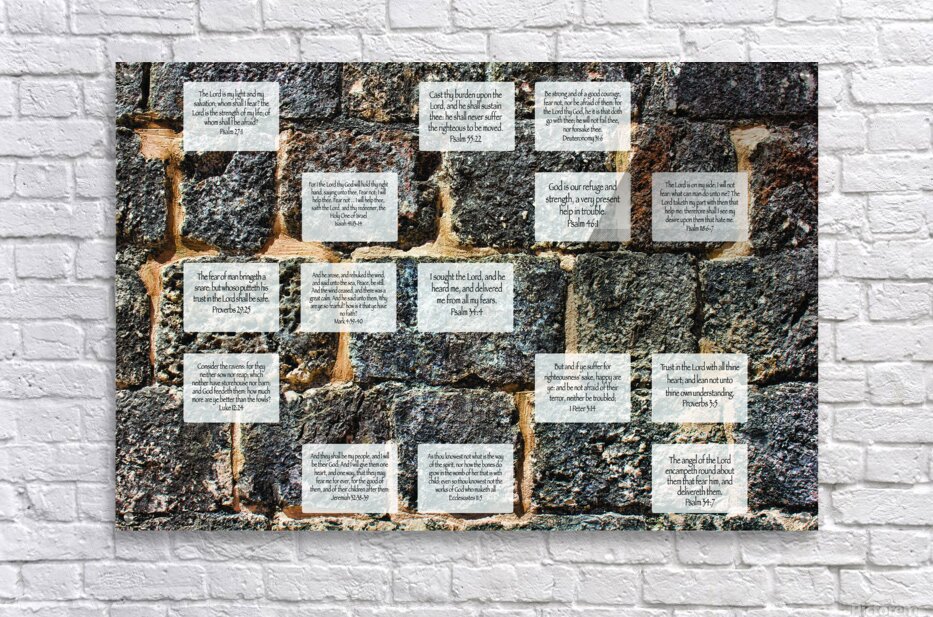 The Lord is my light and my
salvation; whom shall I fear? the
Lord is the strength of my life; of
whom shall I be afraid?
Psalm 27:1
Cast thy burden upon the
Lord, and he shall sustain
thee: he shall never suffer
the righteous to be moved.
Psalm 55:22
Be strong and of a good courage,
fear not, nor be afraid of them: for
the Lord thy God, he it is that doth
go with thee; he will not fail thee,
nor forsake thee.
Deuteronomy 31:6
For I the Lord thy God will hold thy right
hand, saying unto thee, Fear not; I will
help thee. Fear not ... I will help thee,
saith the Lord, and thy redeemer, the
Holy One of Israel
Isaiah 41:13-14
God is our refuge and
strength, a very present
help in trouble.
Psalm 46:1
The Lord is on my side; I will not
fear: what can man do unto me? The
Lord taketh my part with them that
help me: therefore shall I see my
desire upon them that hate me.
Psalm 118:6-7
The fear of man bringeth a
snare: but whoso putteth his
trust in the Lord shall be safe.
Proverbs 29:25
And he arose, and rebuked the wind,
and said unto the sea, Peace, be still.
And the wind ceased, and there was a
great calm. And he said unto them, Why
are ye so fearful? how is it that ye have
no faith?
Mark 4:39-40
I sought the Lord, and he
heard me, and delivered
me from all my fears.
Psalm 34:4
Consider the ravens: for they
neither sow nor reap; which
neither have storehouse nor barn;
and God feedeth them: how much
more are ye better than the fowls?
Luke 12:24
But and if ye suffer for
righteousness' sake, happy are
ye: and be not afraid of their
terror, neither be troubled;
1 Peter 3:14
Trust in the Lord with all thine
heart; and lean not unto
thine own understanding.
Proverbs 3:5
And they shall be my people, and I will
be their God: And I will give them one
heart, and one way, that they may
fear me for ever, for the good of
them, and of their children after them:
Jeremiah 32:38-39
As thou knowest not what is the way
of the spirit, nor how the bones do
grow in the womb of her that is with
child: even so thou knowest not the
works of God who maketh all.
Ecclesiastes 11:5
The angel of the Lord
encampeth round about
them that fear him, and
delivereth them.
Psalm 34:7